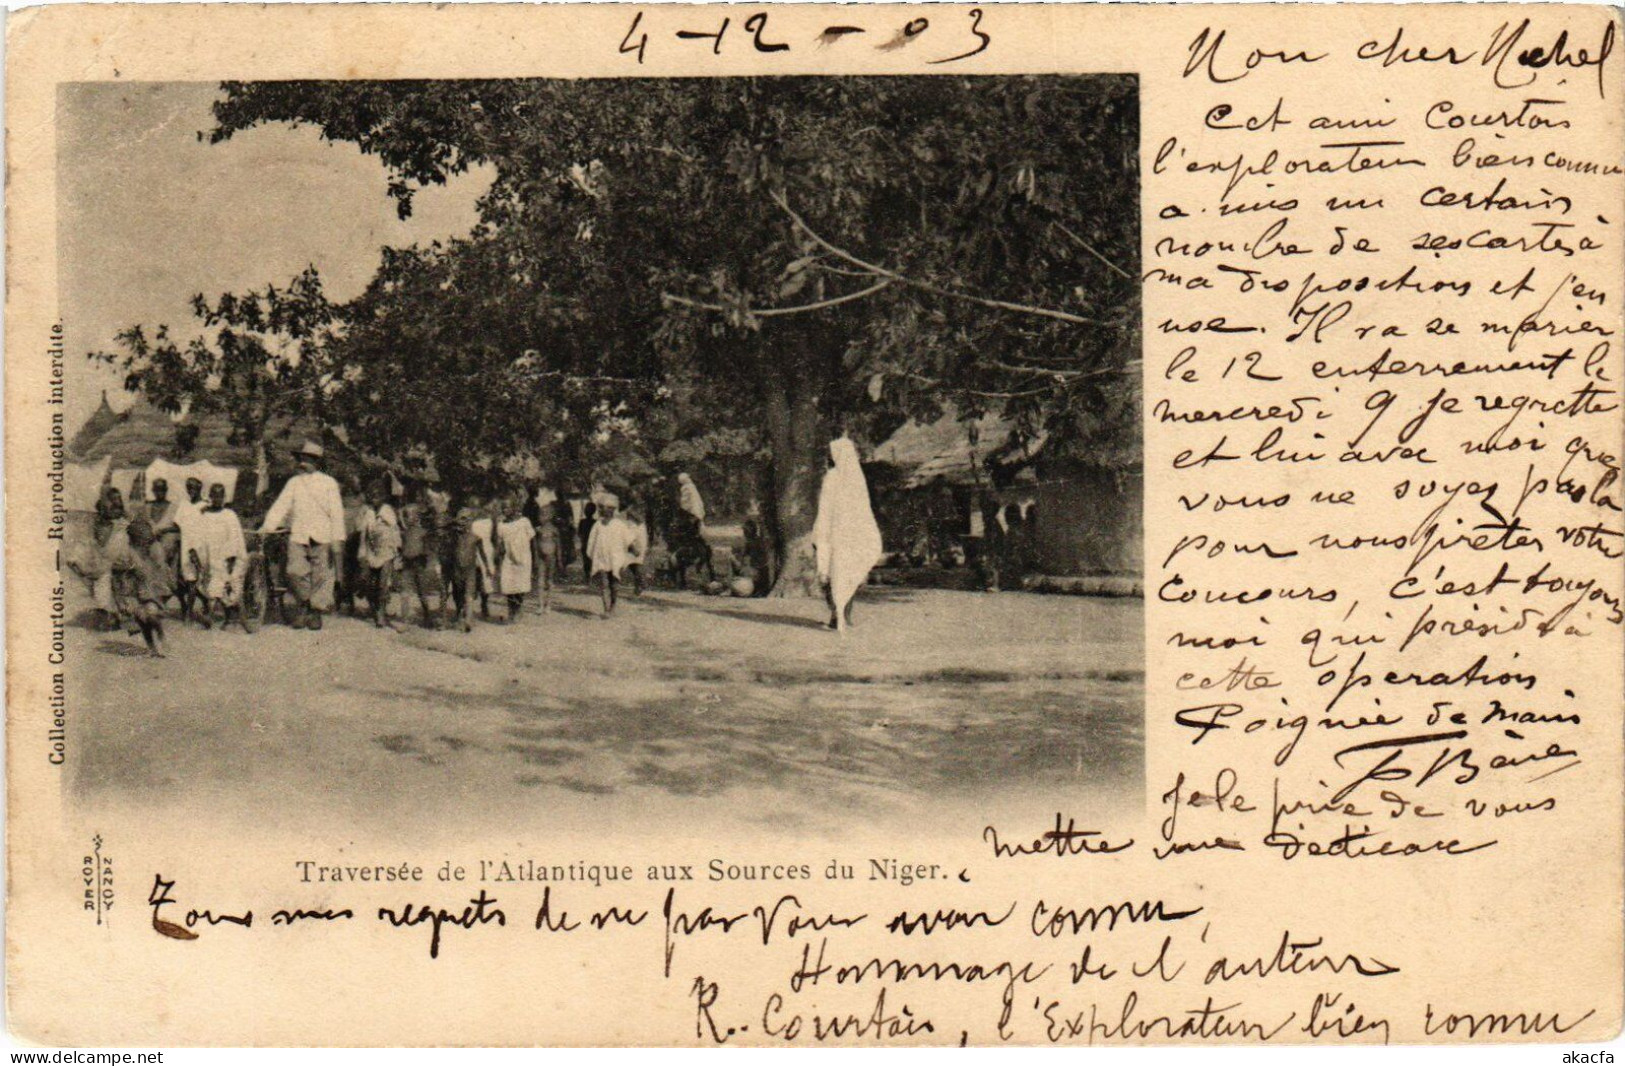 4-12-03
Mon cher Michel
Cet ami Courtois
l'explorateur bien connu
a mis un certain
nombre de ses cartes à
ma disposition et j'en
use. Il va se marier
le 12 enterrement le
mercredi 9 Je regrette
et lui avec moi que
vous ne soyez pas la
pour nous prêter votre
concours, c'est toujours
moi qui préside à
cette operation
Poignée de main
Je le prie de vous
mettre une dédicace
Collection Courtois. — Reproduction interdite.
ROYER
NANCY
Traversée de l'Atlantique aux Sources du Niger.
Tous mes regrets de ne pas vous avoir connu,
Hommage de l'auteur
R. Courtois, l'Explorateur bien connu
akacfa